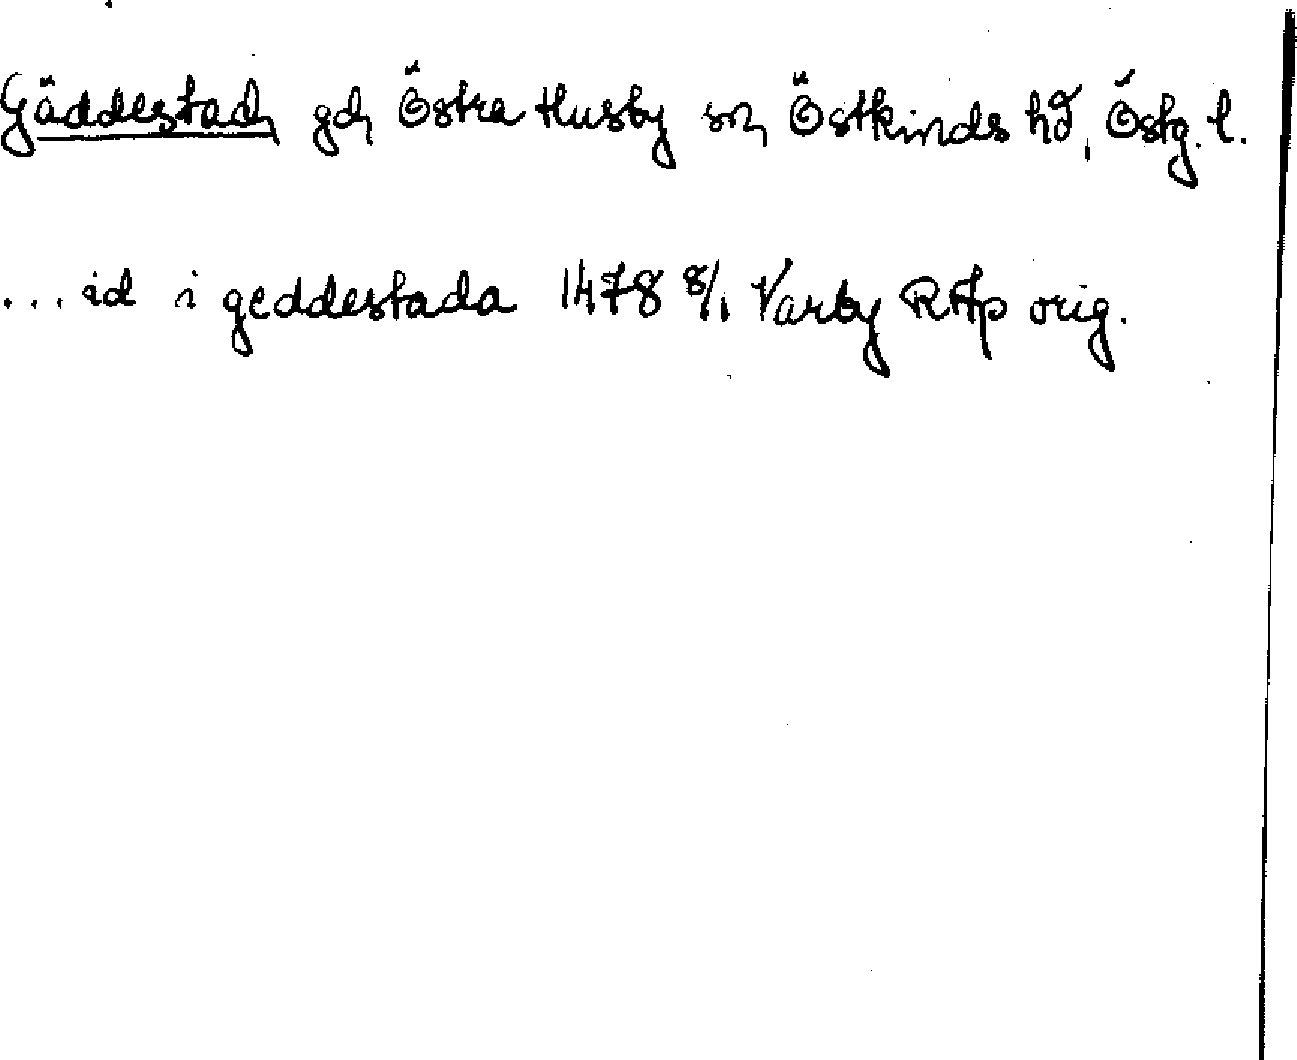 Gäddestad, gd, Östra Husby sn, Östkinds hd, Östg. l.
... id i geddestada 1478 8/1 Varby RAp orig.